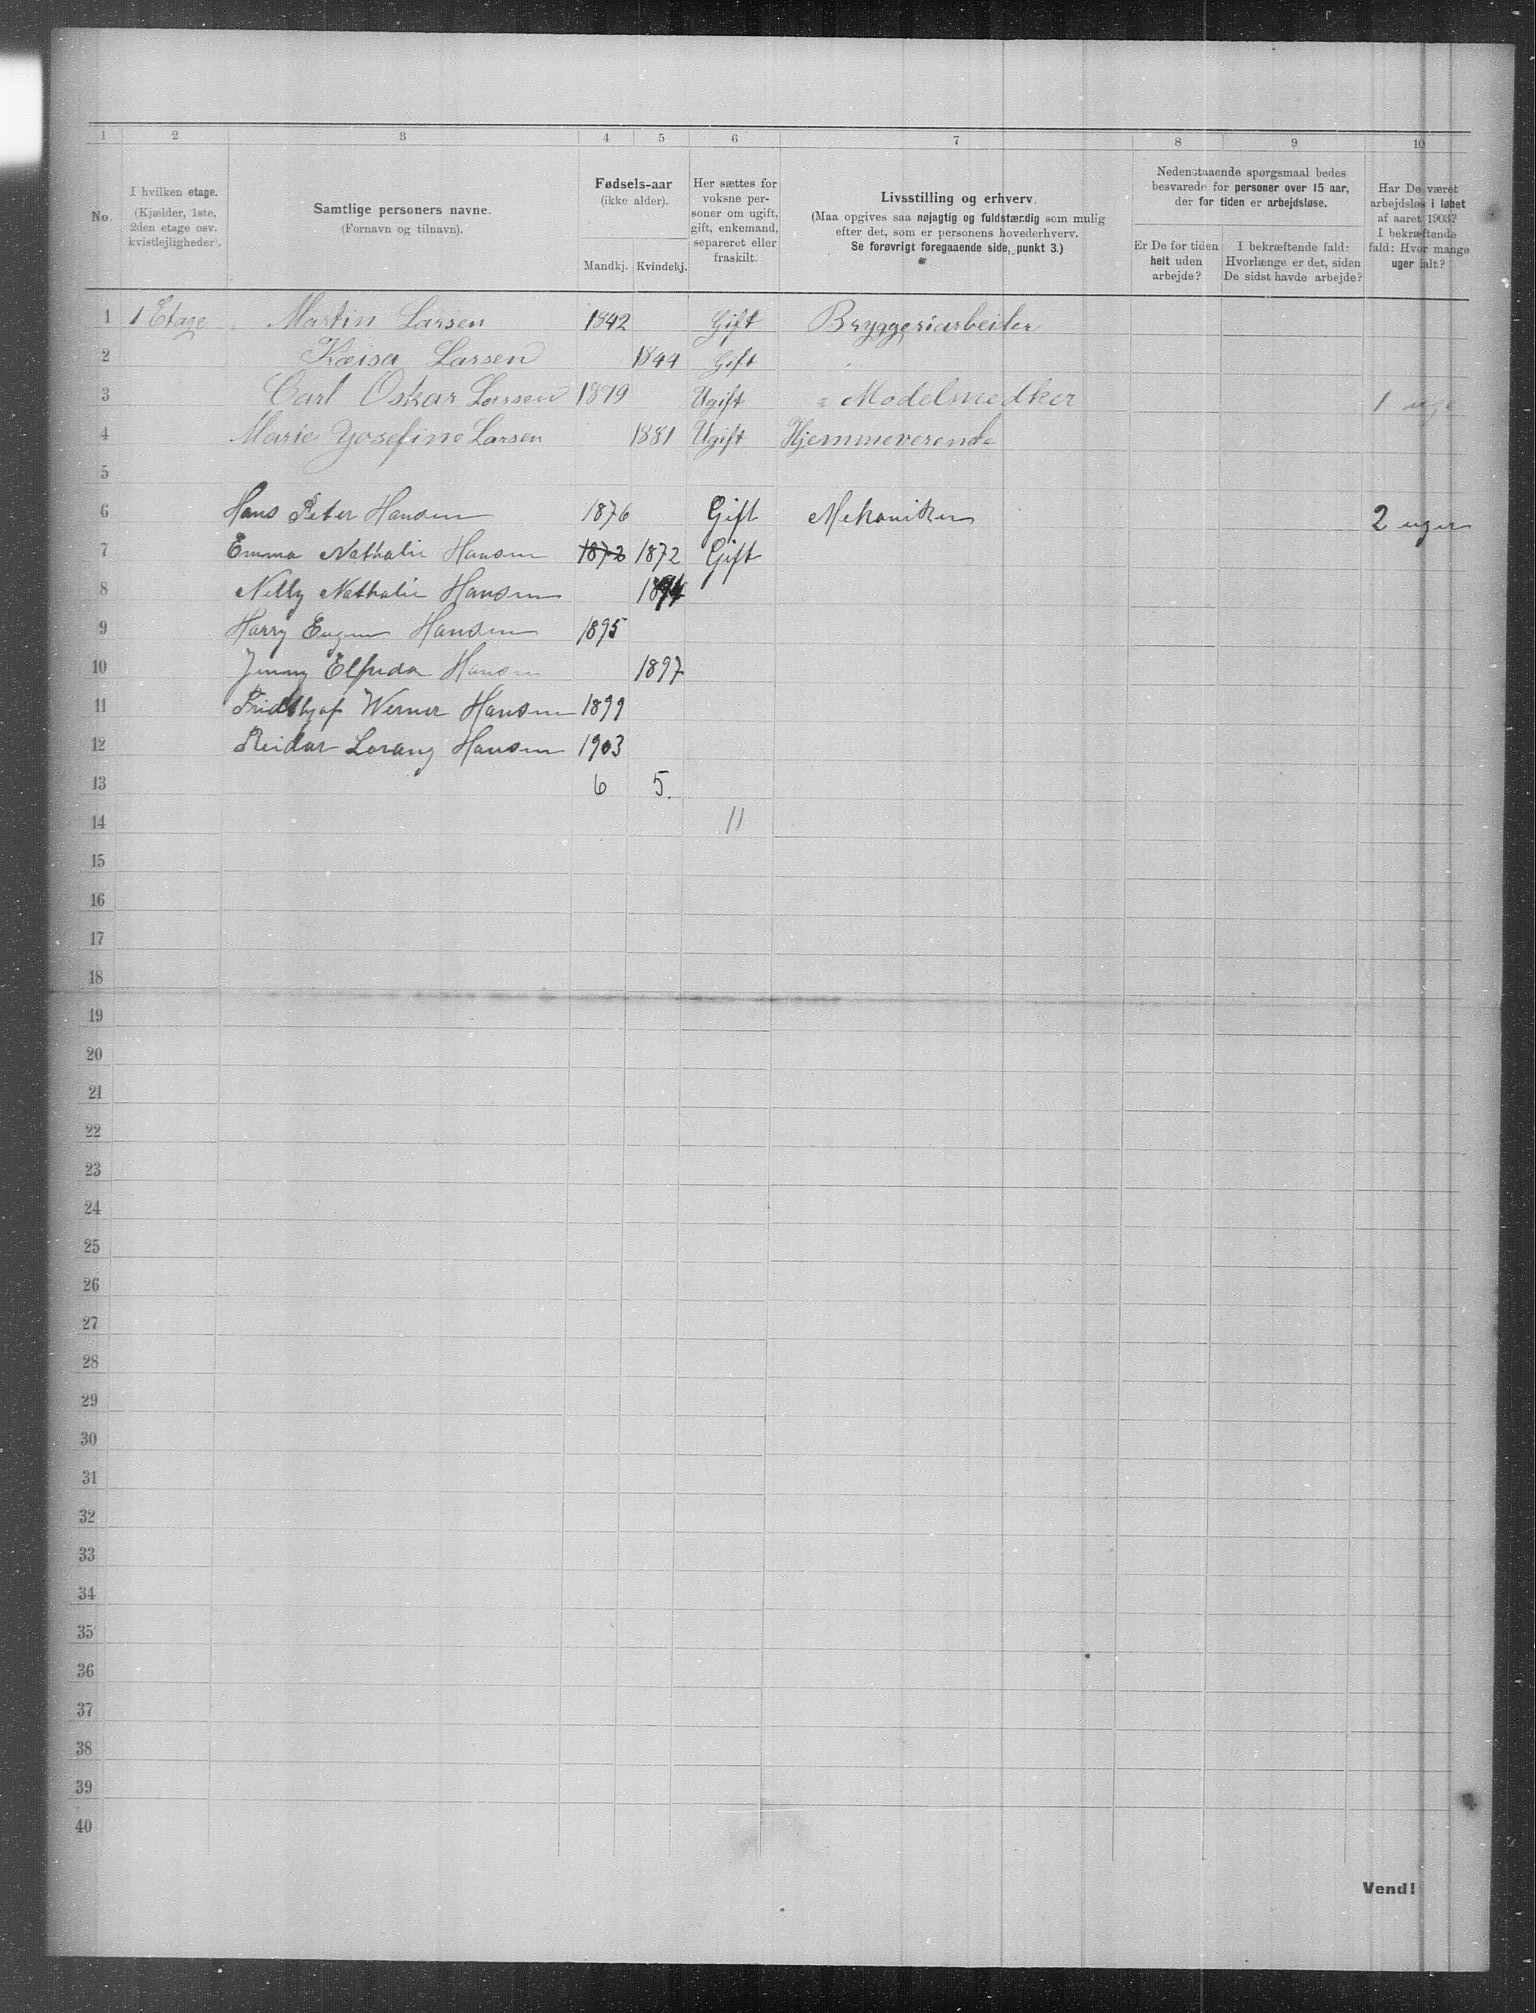 1 2 3 4 5 6 7 8 9 10
No. I hvilken etage. (Kjælder, 1ste, 2den etage osv. kvistlejligheder). Samtlige personers navne. (Fornavn og tilnavn). Fødsels-aar (ikke alder). Mandkj. Kvindekj. Her sættes for voksne personer om ugift, gift, enkemand, separeret eller fraskilt. Livsstilling og erhverv. (Maa opgives saa nøjagtig og fuldstændig som mulig efter det, som er personens hovederhverv. Se forøvrigt foregaaende side, punkt 3.) Nedenstaaende spørgsmaal bedes besvarede for personer over 15 aar, der for tiden er arbejdsløse. Er De for tiden helt uden arbejde? I bekræftende fald: Hvorlænge er det, siden De sidst havde arbejde? Har De været arbejdsløs i løbet af aaret 1903? I bekræftende fald: Hvor mange uger ialt?
1 1 Etage Martin Larsen 1842 Gift Bryggeriarbeiler
2 Kæisa Larsen 1844 Gift
3 Carl Oskar Larsen 1879 Ugift Modelsnedker 1 uge
4 Marie Josefine Larsen 1881 Ugift Hjemmeverende
5
6 Hans Peter Hansen 1876 Gift Mekaniker 2 uger
7 Emma Nathalie Hansen 1872 1872 Gift
8 Nelly Nathalie Hansen 1894
9 Harry Eugen Hansen 1895
10 Jenny Elfrida Hansen 1897
11 Fridthjof Werner Hansen 1899
12 Reidar Lorang Hansen 1903
13 6 5.
14 11
15
16
17
18
19
20
21
22
23
24
25
26
27
28
29
30
31
32
33
34
35
36
37
38
39
40
Vend!